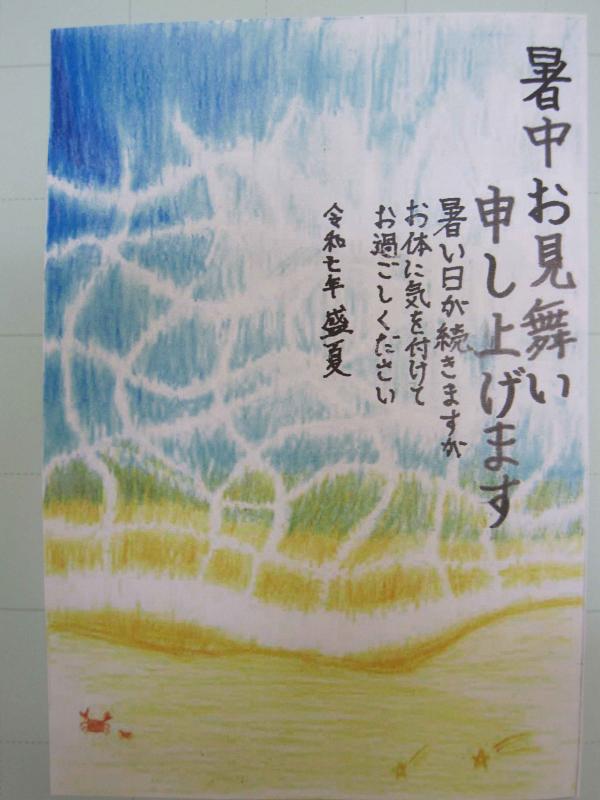 暑中お見舞い
申し上げます
暑い日が続きますが
お体に気を付けて
お過ごしください
令和七年 盛夏